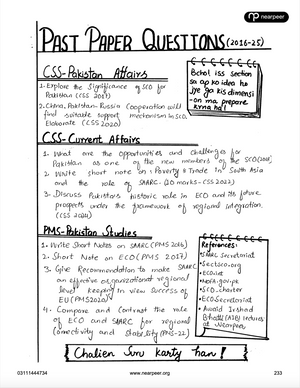 nearpeer
PAST PAPER QUESTIONS (2016-25)
CSS-Pakistan Affairs
1- Explore the Significance of SCO for
Pakistan (CSS 2017)
2- China, Pakistan- Russia Cooperation will
find suitable support mechanism in SCO.
Elaborate (CSS 2020)
Bcho! iss section
sa ap ko idea ho
jye ga kis dimensi
-on ma prepare
krna ha!
CSS-Current Affairs
1- What are the opportunities and challenges for
Pakistan as one of the new members of the SCO
2- Write short note on : Poverty & Trade in South Asia
and the role of SAARC- (20 marks- CSS 2022)
3- Discuss Pakistan's historic role in ECO and its future
prospects under the framework of regional integration.
PMS-Pakistan Studies
1- Write Short Notes on SAARC (PMS 2016)
2- Short Note on ECO (PMS 2017)
3- Give Recommendation to make SAARC
an effective organizational regional
level keeping in view success of
EU (PMS 2020)
4- Compare and Contrast the role
of ECO and SAARC for regional
Connectivity and Stability (PMS-22)
References:
SAARC Secretariat
Sectsco.org
ECO.int
MOFA.gov.pk
SCO charter
ECO Secretariat
Awaid Irshad
Bhatti (AIB) lectures
at Nearpeer
Chalien Suru karty han!
03111444734
www.nearpeer.org
233